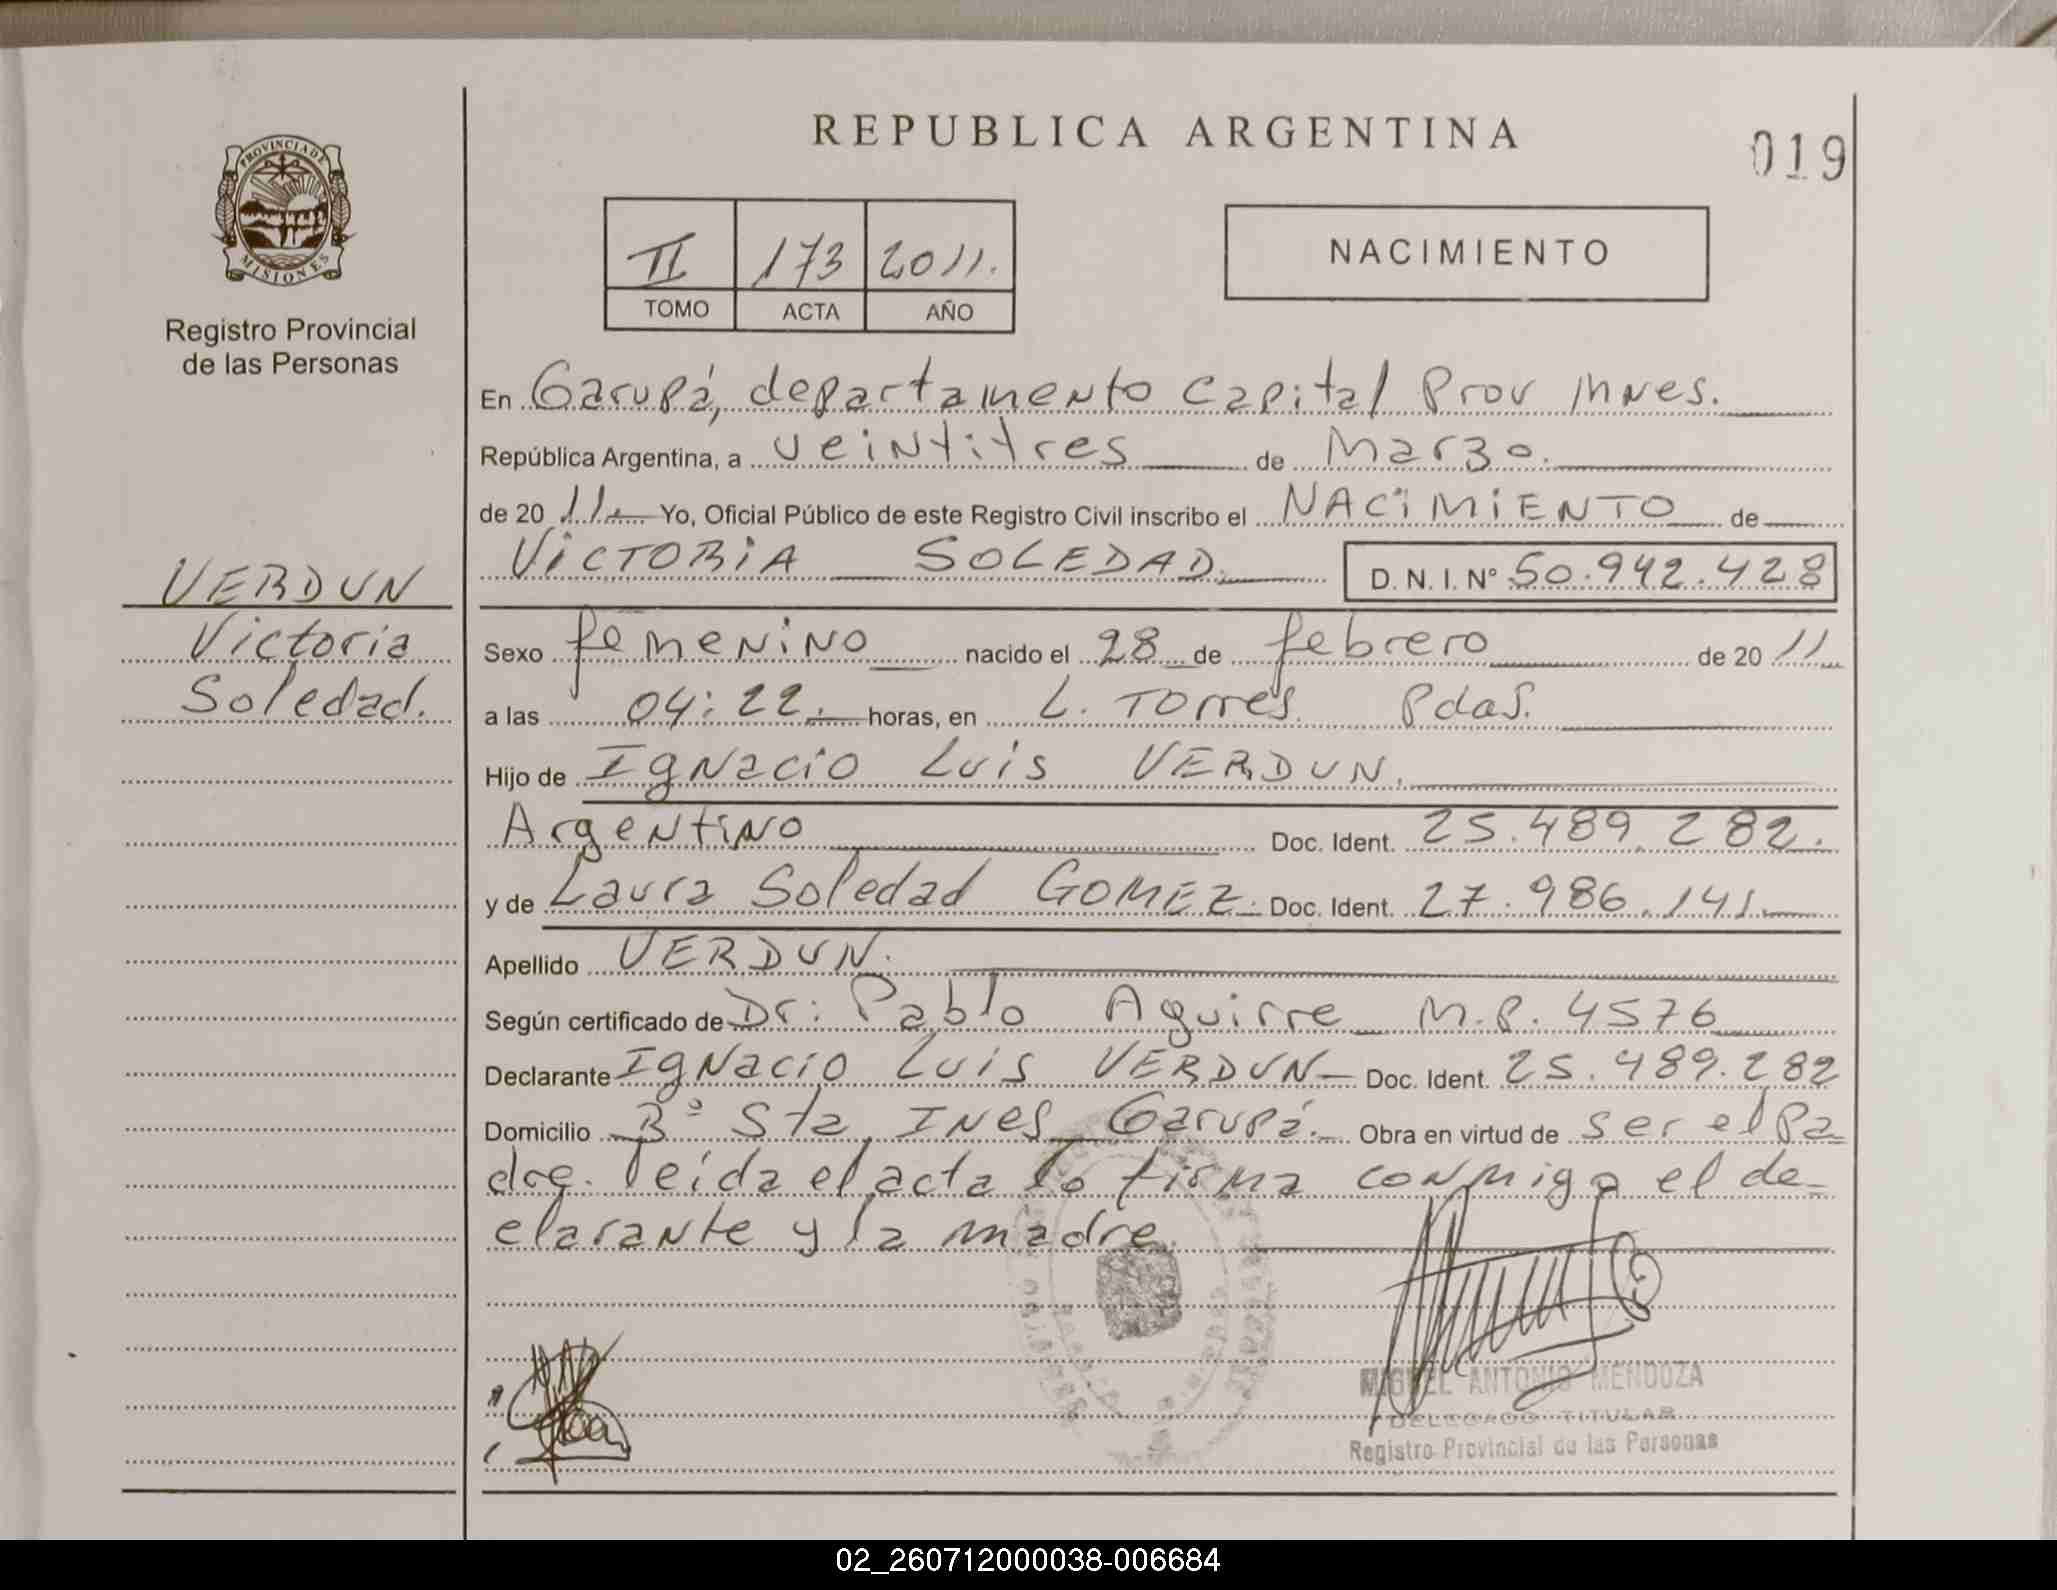 REPUBLICA ARGENTINA
019
PROVINCIA DE
MISIONES
Registro Provincial
de las Personas
II 173 2011.
TOMO ACTA AÑO
NACIMIENTO
VERDUN
Victoria
Soledad.
En Garupá, departamento Capital Prov Mnes.
República Argentina, a veintitres de Marzo.
de 20 11 Yo, Oficial Público de este Registro Civil inscribo el NACIMIENTO de
VICTORIA SOLEDAD. D. N. I. Nº 50.942.428
Sexo femenino nacido el 28 de febrero de 20 11
a las 04:22. horas, en L. Torres. Pdas.
Hijo de Ignacio Luis VERDUN.
Argentino Doc. Ident. 25.489.282.
y de Laura Soledad GOMEZ. Doc. Ident. 27.986.141.
Apellido VERDUN.
Según certificado de Dr: Pablo Aguirre M.P. 4576
Declarante Ignacio Luis VERDUN Doc. Ident. 25.489.282
Domicilio Bº Sta INES Garupá. Obra en virtud de ser el pa
dre. leida el acta lo firma conmigo el de-
clarante y la madre.
MIGUEL ANTONIO MENDOZA
DELEGADO TITULAR
Registro Provincial de las Personas
02_260712000038-006684